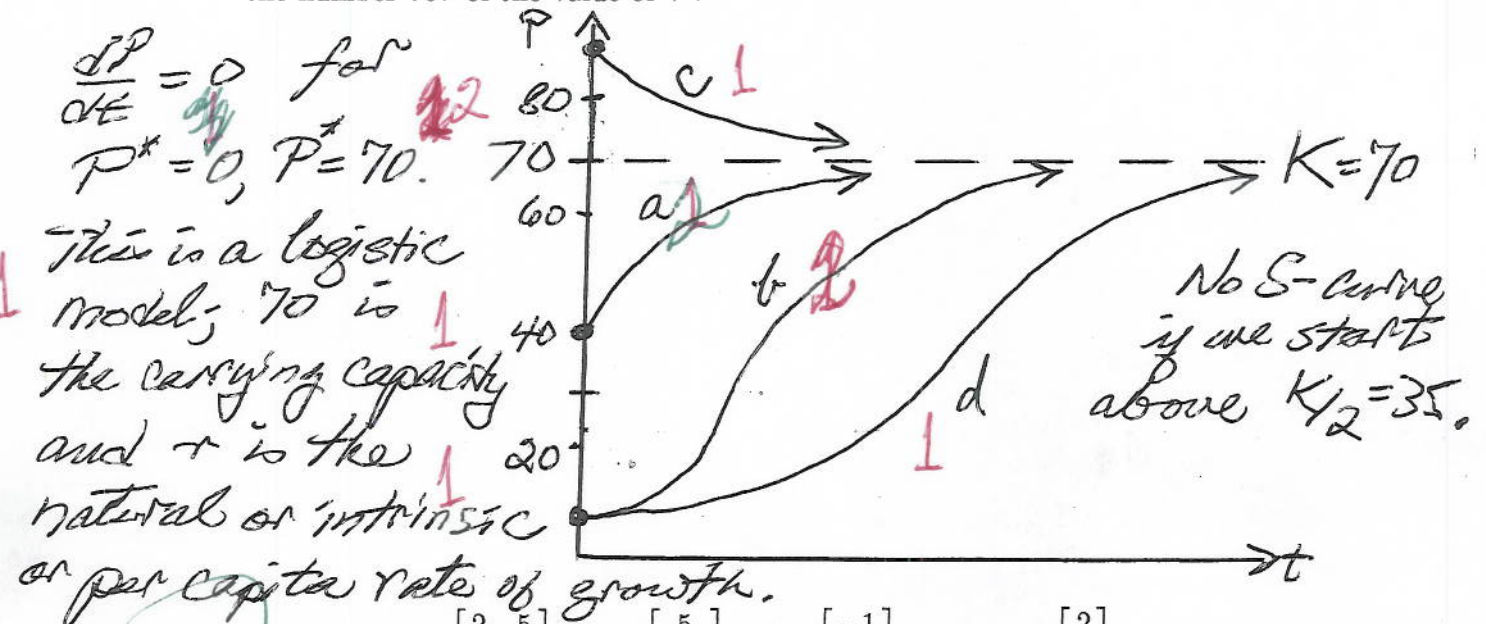 dP/dt = 0 for
P* = 0, P* = 70.
2
This is a logistic
1
model; 70 is
1
the carrying capacity
and r is the
1
natural or intrinsic
or per capita rate of growth.
P
80
70
60
40
20
c 1
a
b
d
1
K=70
t
No S-curve
if we starts
above K/2=35.